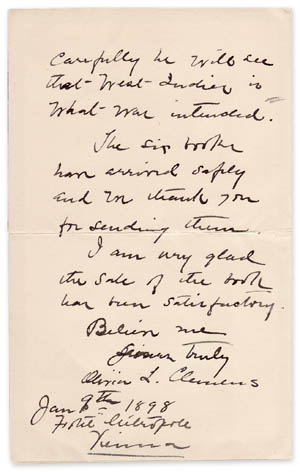 Carefully he will see
that West Indies is
what was intended.
The six books
have arrived safely
and we thank you
for sending them.
I am very glad
the sale of the book
has been satisfactory.
Believe me
truly
Olivia L. Clemens
Jan 9th 1898
Hotel Metropole
Vienna